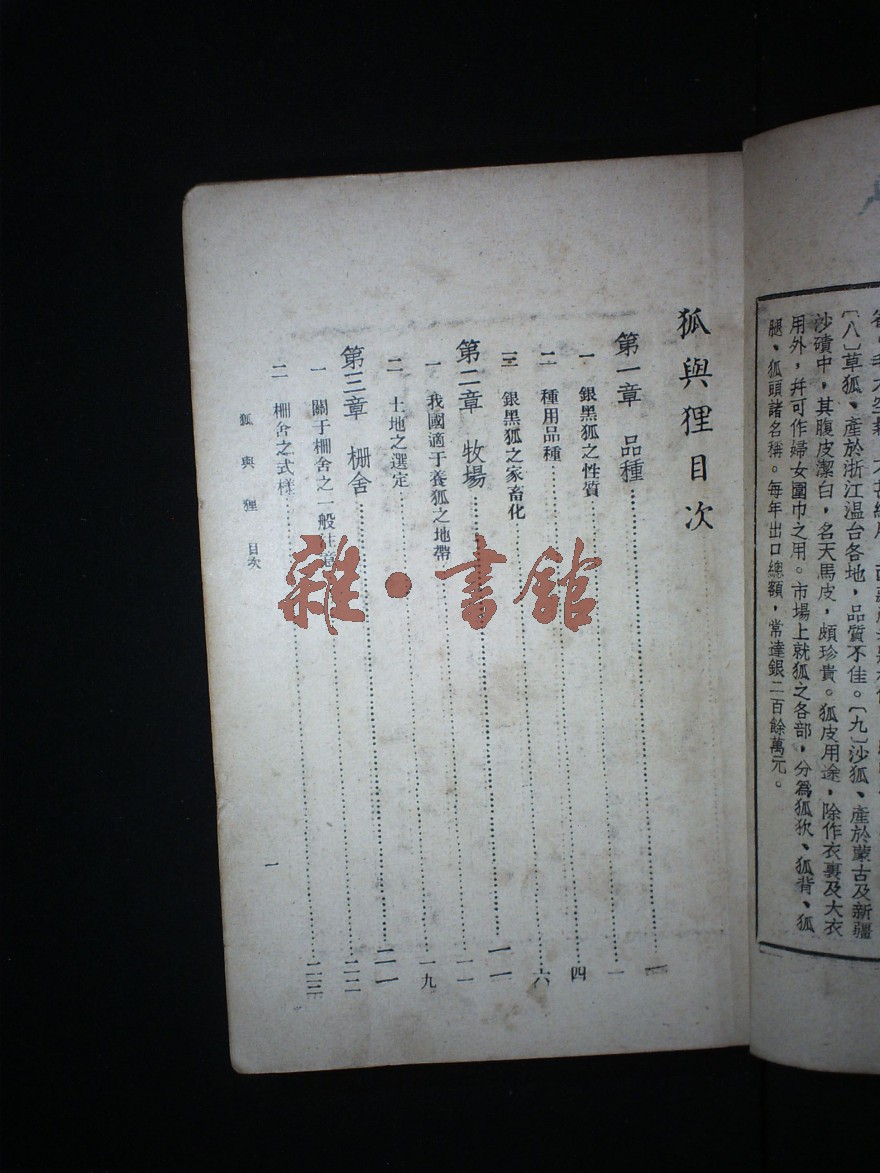 〔八〕草狐、產於浙江温台各地，品質不佳。〔九〕沙狐、產於蒙古及新疆
沙磧中，其腹皮潔白，名天馬皮，頗珍貴。狐皮用途，除作衣裏及大衣
用外，幷可作婦女圍巾之用。市場上就狐之各部，分爲狐肷、狐背、狐
腿、狐頭諸名稱。每年出口總額，常達銀二百餘萬元。
狐與狸目次
第一章 品種……一
一 銀黑狐之性質……一
二 種用品種……四
三 銀黑狐之家畜化……六
第二章 牧場……一一
一 我國適于養狐之地帶……一一
二 土地之選定……一九
第三章 栅舍……二一
一 關于栅舍之一般注意……二二
二 栅舍之式樣……二三
狐與狸 目次
一
雜·書館